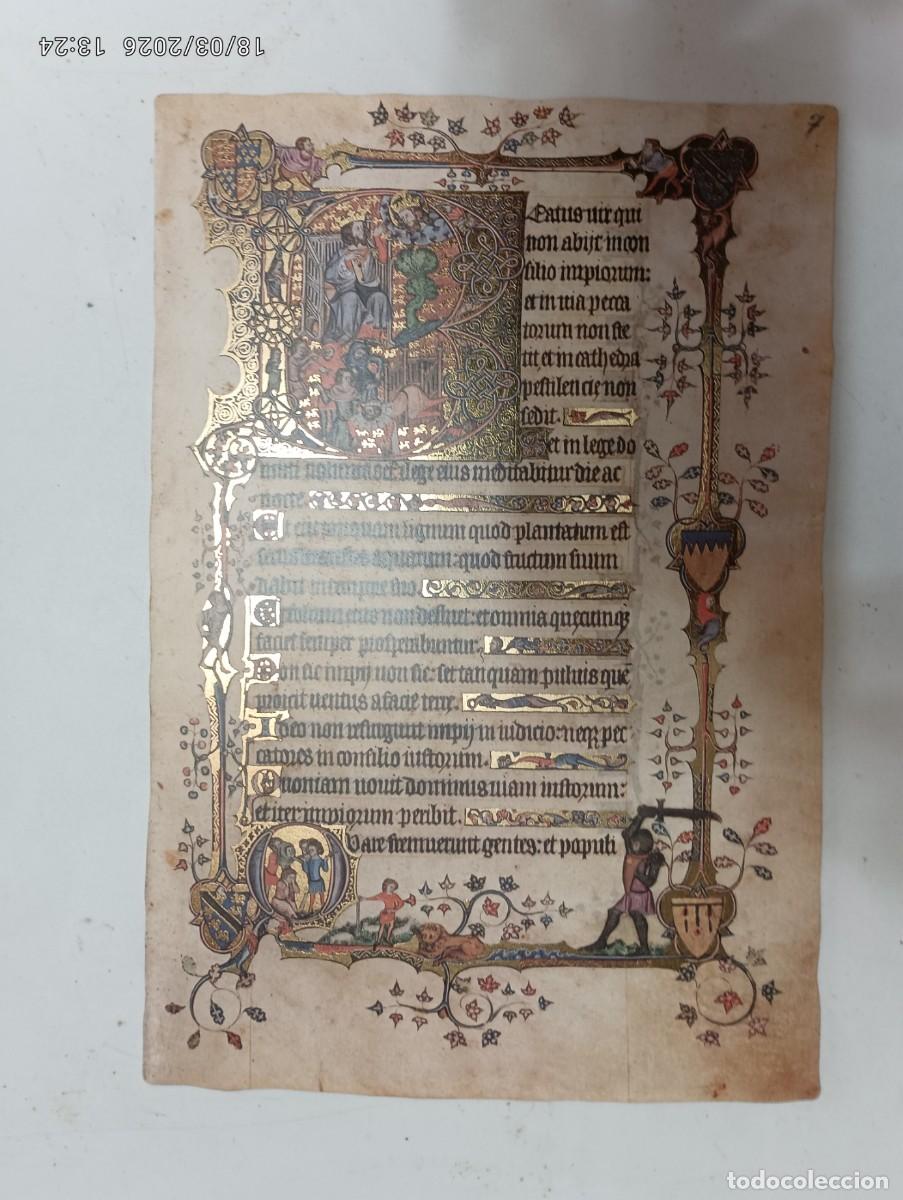 18/03/2026 13:24
7
Eatus uir qui
non abijt in con
silio impiorum:
et in uia pecca
torum non ste
tit et in cathedra
pestilencie non
sedit.
Set in lege do
mini uoluntas et lege eius meditabitur die ac
nocte
Et erit tanquam lignum quod plantatum est
secus aquarum: quod fructum suum
dabit in tempore suo.
Et folium eius non defluet: et omnia quecunqȝ
faciet semper prosperabuntur.
Non sic impij non sic: set tanquam puluis quē
proicit uentus a facie terre.
Ideo non resurgunt impij in iudicio: neqȝ pec
catores in consilio iustorum.
Quoniam nouit dominus uiam iustorum:
et iter impiorum peribit.
Quare fremuerunt gentes: et populi
todocoleccion